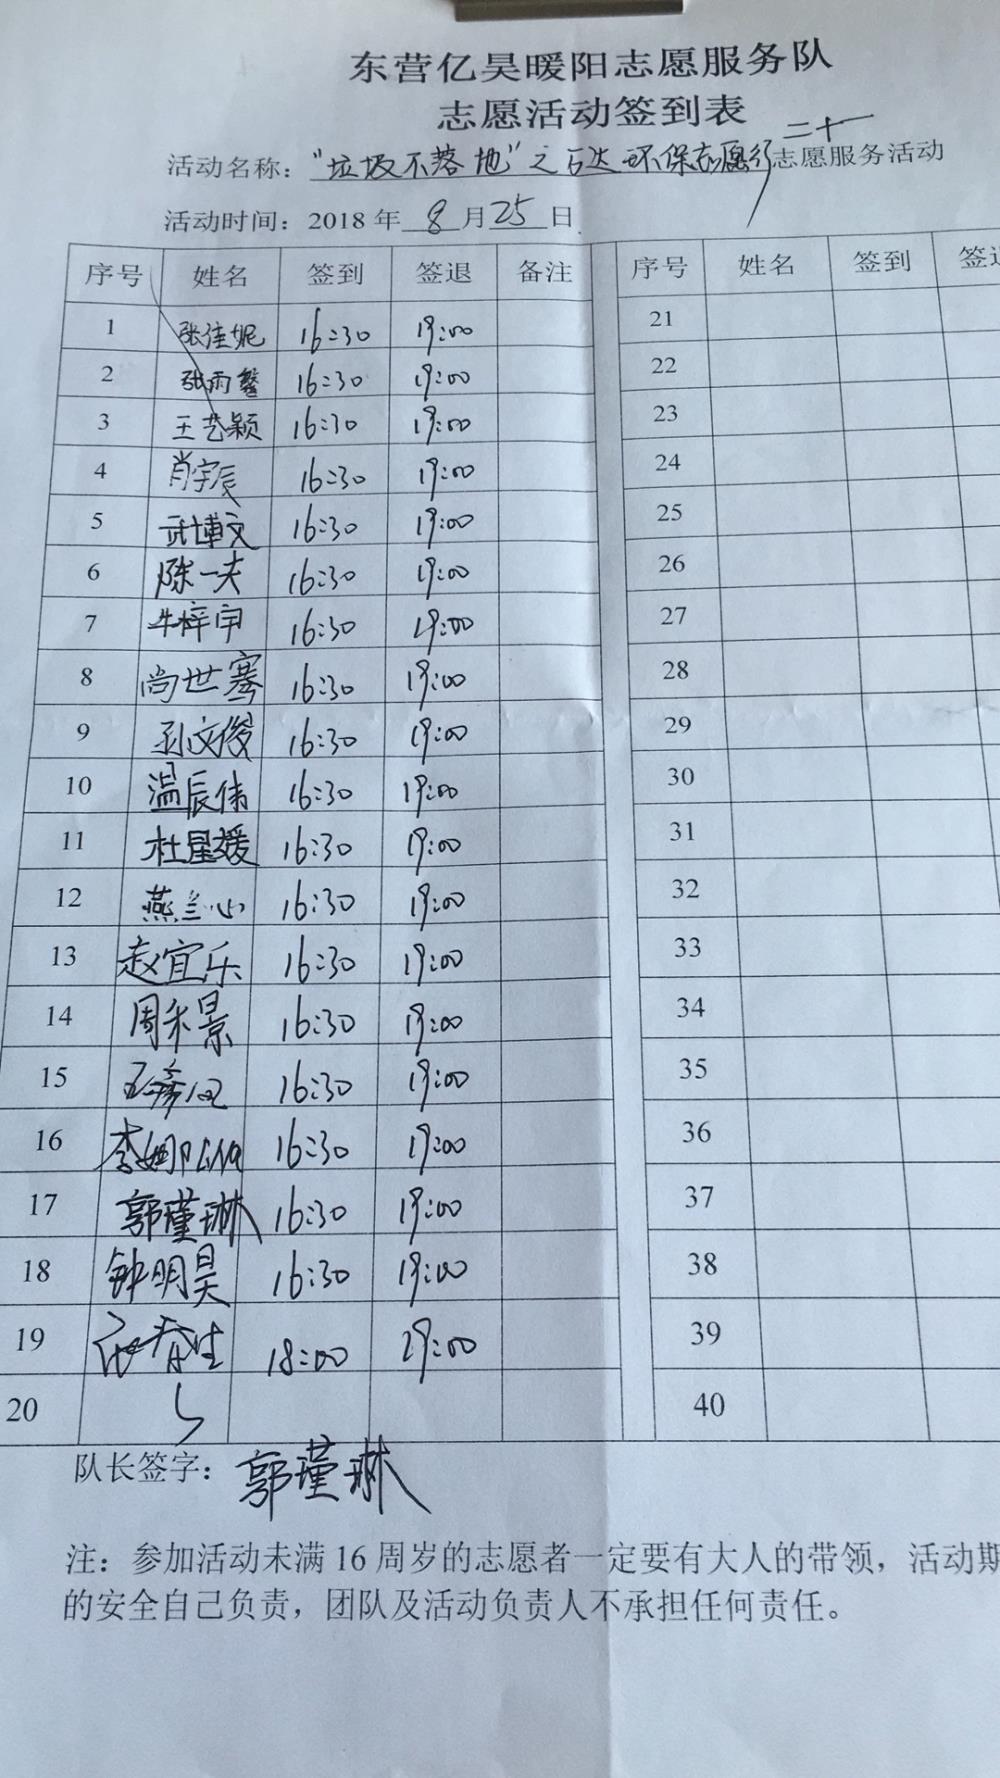 东营亿昊暖阳志愿服务队
志愿活动签到表
活动名称："垃圾不落地"之万达环保志愿行二十一志愿服务活动
活动时间：2018年8月25日
序号 姓名 签到 签退 备注 序号 姓名 签到 签退
1 张佳妮 16:30 19:00 21
2 张雨馨 16:30 19:00 22
3 王艺颖 16:30 19:00 23
4 肖宇辰 16:30 19:00 24
5 武博文 16:30 19:00 25
6 陈一夫 16:30 19:00 26
7 牛梓宇 16:30 19:00 27
8 尚世骞 16:30 19:00 28
9 孙文俊 16:30 19:00 29
10 温辰伟 16:30 19:00 30
11 杜星媛 16:30 19:00 31
12 燕兰心 16:30 19:00 32
13 赵宜乐 16:30 19:00 33
14 周禾景 16:30 19:00 34
15 16:30 19:00 35
16 李娜 16:30 19:00 36
17 郭瑾琳 16:30 19:00 37
18 钟明昊 16:30 19:00 38
19 张春生 18:00 19:00 39
20 40
队长签字：郭瑾琳
注：参加活动未满16周岁的志愿者一定要有大人的带领，活动期
的安全自己负责，团队及活动负责人不承担任何责任。